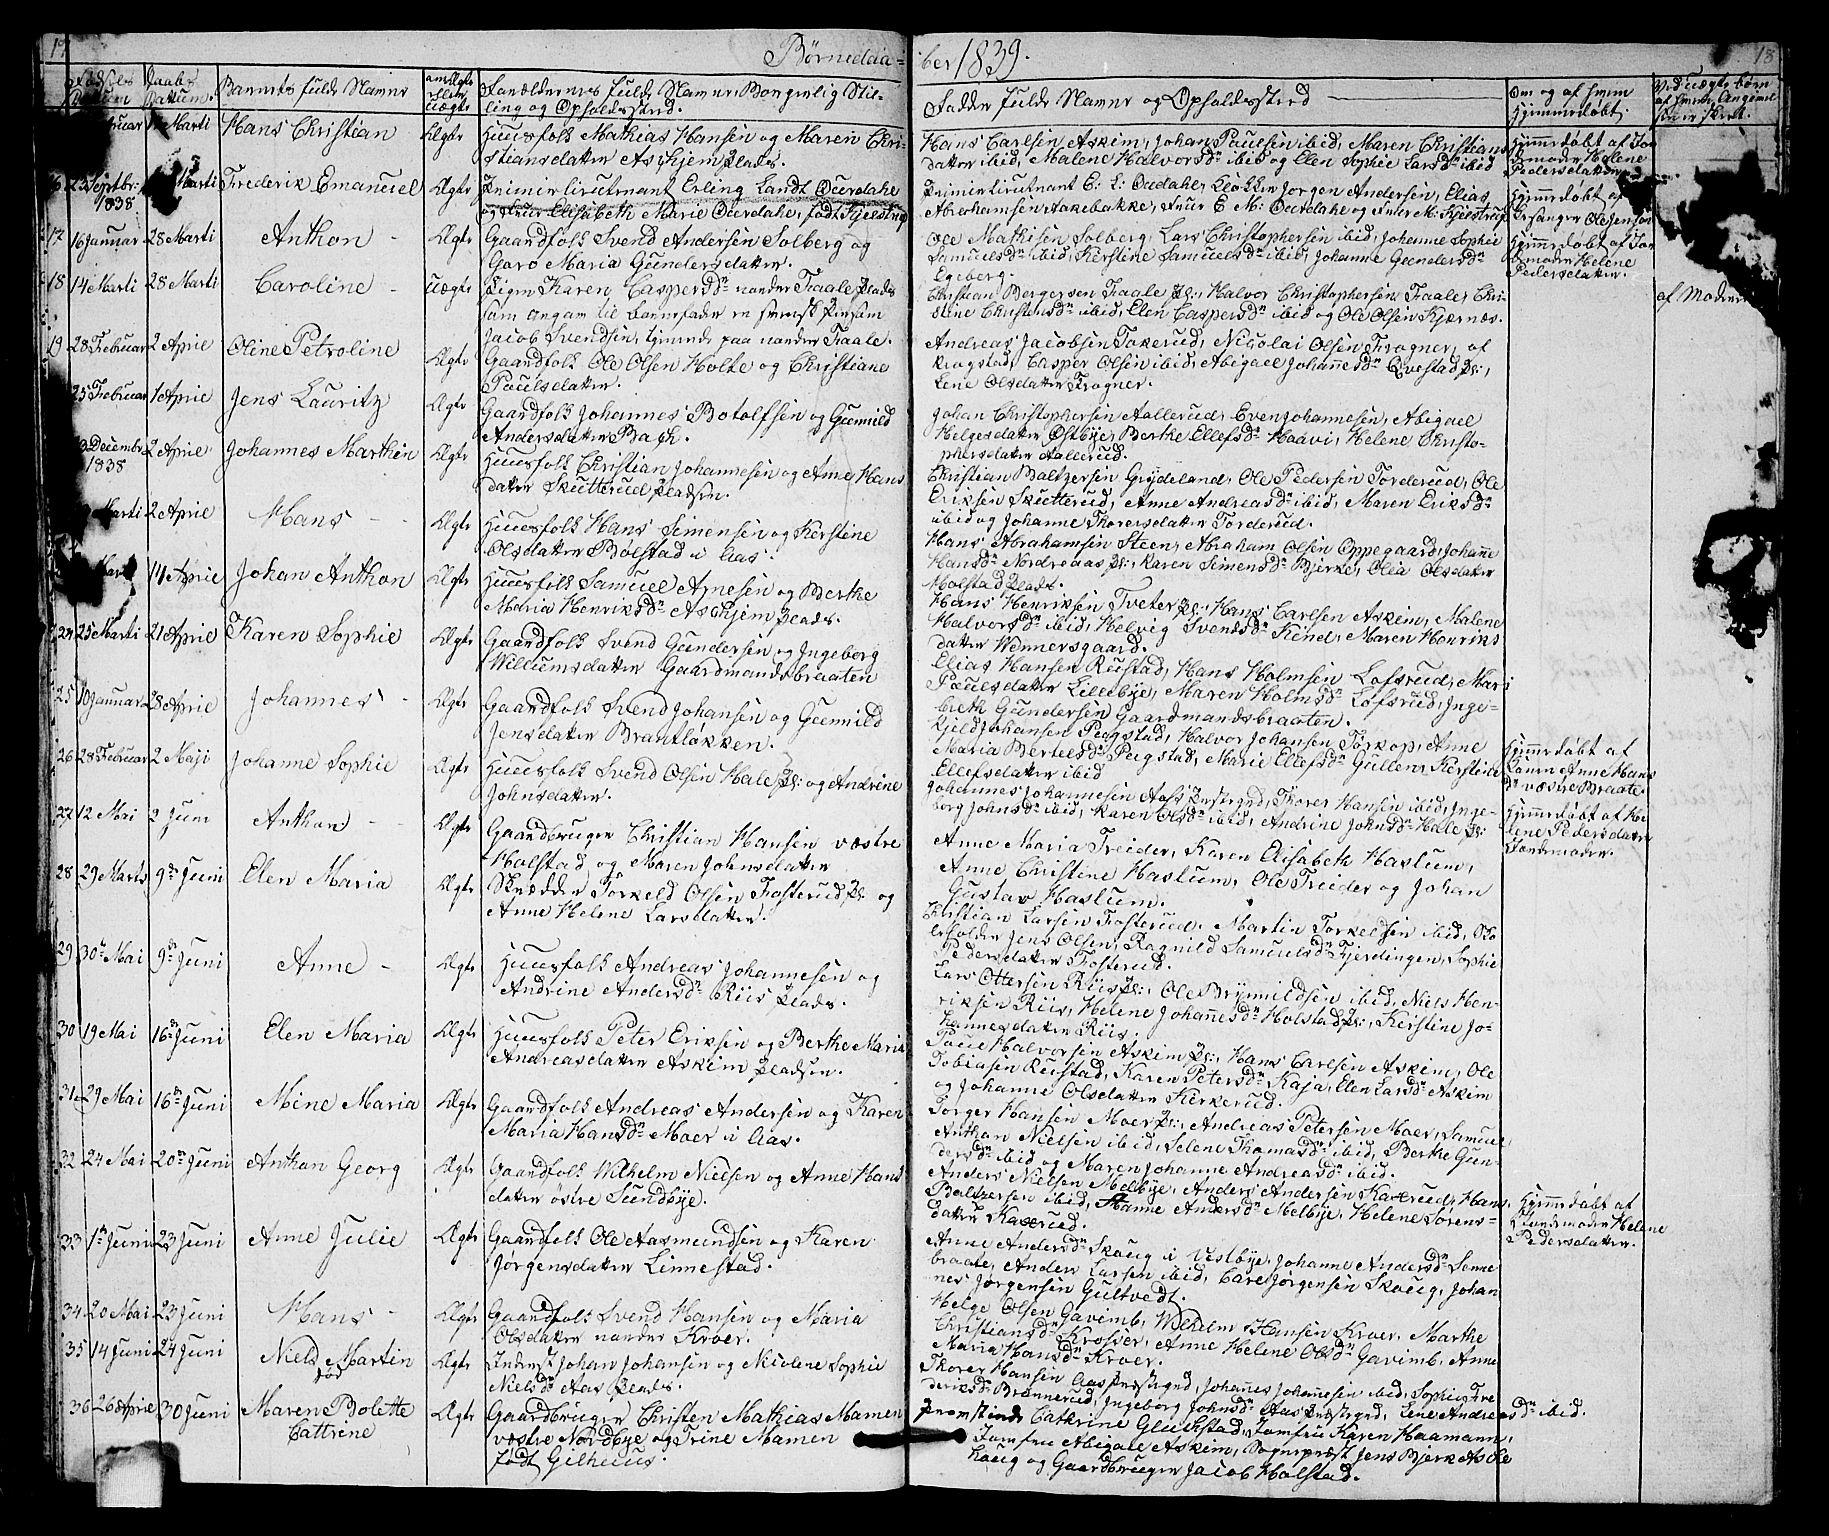 17
Børnedaa=
ber 1839.
18
Fødsels Dattum
Daabs Dattum.
Barnets fulde Nafne
om Ægte eller uægte
Forældrenes fulde Nafne, Borgerlig Stil-
ling og Opholdssted.
Fadder fulde Nafne og Opholdssted
Om og af hvem
hjemmedøbt.
Ved uægte børn
af hvem Angivel
sen er skeet.
Februar
Marti
Hans Christian
Ægte
Huusfolk Mathias Hansen og Maren Chri-
stiansdatter Askjem Plads.
Hans Carlsen Askim, Johan Paulsen ibid, Maren Christians
datter ibid, Malene Halvorsdr ibid og Elen Sophie Larsdr ibid
hjemmedøbt af Jor
demoder Helene
Pedersdatter
23 Septbr:
1838
Marti
Frederik Emanuel
Ægte
Primierlieutnant Erling Landt Ouerdahe
og Frue Elisabeth Marie Ouerdahe, født Kjelstrup
Primierlieutnant E: L: Ouedahe, Klokker Jørgen Andersen, Elias
Abrehamsen Aakebakke, Frue E M: Ouerdahe og Frue M: Kjelstrup
hjemmedøbt af
Forsanger Ole Jensen
17
16 Januar
28 Marti
Anthon -
Ægte
Gaardfolk Svend Andersen Solberg og
Garo Maria Gundersdatter.
Ole Mathisen Solberg, Lars Christophersen ibid, Johanne Sophie
Samuelsdr ibid, Kerstine Samuelsdr ibid, Johanne Gundersdr
Egeberg.
hjemmedøbt af Jor
demoder Helene
Pedersdatter.
18
14 Marti
28 Marti
Caroline -
uægte
Pigen Karen Caspersdr nander Fraale Plads
som angav til barnefader en svensk Person
Jacob Svendsen, tjenende paa nander Fraale.
Christian Bergersen Fraale Pl:, Halvor Christophersen Fraale, Chri-
stine Christensdr ibid, Elen Caspersdr ibid og Ole Olsen Kjærnæs.
af Moderen
19
28 Februar
2 Aprie
Oline Petroline
Ægte
Gaardfolk Ole Olsen Holte og Christiane
Paulsdatter.
Andreas Jacobsen Takerud, Nicolai Olsen Frogner, af
Krogstad, Casper Olsen ibid, Abigael Johannesdr Qvestad Pl:,
Lene Olsdatter Frogner.
25 Februar
1 Aprie
Jens Lauritz
Ægte
Gaardfolk Johannes Botolfsen og Gunnild
Andersdatter Bagh.
Johan Christophersen Aallerud, Even Johannesen, Abigael
Helgesdatter Østbye, Berthe Ellefsdr Haavi, Helene Christo-
phersdatter Aallerud.
3 Decembr
1838
2 Aprie
Johannes Marthin
Ægte
Huusfolk Christian Johannesen og Anne Hans
datter Skutterud Pladsen.
Christian Baltzersen Grydeland, Ole Pedersen Torderud, Ole
Eriksen Skutterud, Anne Andreasdr ibid, Maren Eriksdr
ibid og Johanne Thorersdatter Torderud.
Marti
2 Aprie
Hans - -
Ægte
Huusfolk Hans Simensen og Kerstine
Olsdatter Bølstad i Aas.
Hans Abrahamsen Steen, Abraham Olsen Oppegaard, Johane
Hansdr Nordreaas Pl:, Karen Simensdr Bjerke, Olea Olsdatter
Holstad Plads.
14 Aprie
Johan Anthon
Ægte
Huusfolk Samuel Arnesen og Berthe
Maria Henriksdr Askjem Plads.
Hans Henriksen Tveter Pl:, Hans Carlsen Askim, Malene
Halvorsdr ibid, Helvig Svendsdr Kind, Maren Henriks
datter Wennersgaard.
24
25 Marti
21 Aprie
Karen Sophie
Ægte
Gaardfolk Svend Gundersen og Ingeborg
Willumsdatter Gaardmandsbraaten
Elias Hansen Rustad, Hans Holmsen Løfsrud, Mari
Paulsdatter Lillebye, Maren Holmsdr Løfsrud, Inge-
breth Gundersen Gaardmandsbraaten.
25
10 Januar
28 Aprie
Johannes -
Ægte
Gaardfolk Svend Johansen og Gunnild
Jensdatter Brantløkken.
Kjeld Johansen Pegstad, Halvor Johansen Torkop, Anne
Maria Bertelsdr Pegstad, Marie Ellefsdr Gullen, Kerstine
Ellefsdatter ibid
26
28 Februar
2 Maji
Johanne Sophie
Ægte
Huusfolk Svend Olsen Hale Pl: og Andrine
Johnsdatter.
Johannes Johannesen Aass Præstegrd, Thorer Hansen ibid, Inge-
borg Johnsdr ibid, Karen Olsdr ibid, Andrine Johnsdr Hale Pl:
hjemmedøbt af
Konen Anne Hans
dr væstre Braate.
27
12 Mai
2 Juni
Anthon - -
Ægte
Gaardbruger Christian Hansen væstre
Holstad og Maren Johnsdatter
Anne Maria Treider, Karen Elisabeth Haslum,
Anne Christine Haslum, Ole Treider og Johan
Gustav Haslum.
hjemmedøbt af He-
lene Pedersdatter
Jordemoder.
28
29 Marts
9de Juni
Elen Maria
Ægte
Skrædder Torkeld Olsen Fosterud Pl: og
Anne Helene Larsdatter.
Christian Larsen Fosterud, Martin Torkeldsen ibid, Sko
leholder Jens Olsen, Ragnild Samuelsdr Fjerdingen, Sophie
Pedersdatter Fosterud.
29
30te Mai
9de Juni
Anne -
Ægte
Huusfolk Andreas Johannesen og
Andrine Andersdr Riis Plads.
Lars Ottersen Riis Pl:, Ole Brynnildsen ibid, Niels Hen-
riksen Riis, Helene Johanesdr Holstad Pl:, Kerstine Jo-
hannesdatter Riis.
30
19 Mai
16de Juni
Elen Maria
Ægte
Huusfolk Peter Eriksen og Berthe Maria
Andreasdatter Askim Pladsen.
Paul Halvorsen Askim Pl:, Hans Carlsen Askim, Ole
Tobiasen Rustad, Karen Petersdr Kaja, Elen Larsdr Askim
og Johanne Olsdatter Kirkerud.
31
29 Mai
16de Juni
Mine Maria
Ægte
Gaardfolk Andreas Andersen og Karen
Maria Hansdr Moer i Aas.
Torger Hansen Moer Pl:, Andreas Petersen Moer, Samuel
Anthon Nielsen ibid, Selene Thomasdr ibid, Berthe Gun-
dersdr ibid og Maren Johanne Andreasdr ibid.
32
24 Mai
20de Juni
Anthon Georg
Ægte
Gaardfolk Wilhelm Nielsen og Anne Hans
datter østre Sundbye.
Anders Nielsen Melbye, Anders Andersen Kaxerud, Hans
Baltzersen ibid, Hanne Andersdr Melbye, Helene Sørens-
datter Kaxerud.
hjemmedøbt af
Jordemoder Helene
Pedersdatter.
33
1ste Juni
23 Juni
Anne Julie
Ægte
Gaardfolk Ole Aasmundsen og Karen
Jørgensdatter Linnestad.
Anne Andersdr Skoug i Vestbye, Johanne Andersdr Sønne
braate, Anders Larsen ibid, Carl Jørgensen Skoug, Johan
nes Jørgensen Gultvedt.
34
20 Mai
23 Juni
Hans -
Ægte
Gaardfolk Svend Hansen og Maria
Olsdatter nander Kroer.
Helge Olsen Gavimb, Wilhelm Hansen Kroer, Marthe
Christiansdr Krosser, Anne Helene Olsdr Gavimb, Anne
Maria Hansdr Kroer.
35
14 Juni
24 Juni
Niels Martin
død
Ægte
Inderst Johan Johansen og Nicolene Sophie
Nielsdr Aas Plads.
Thorer Hansen Aas Præstegrd, Johanes Johannesen ibid, Sophie Fre
deriksdr Brønnerud, Ingeborg Johnsdr Aas Præstegrd, Lene Andreasdr ibid.
36
26 Aprie
30 Juni
Maren Bolette
Cattrine
Ægte
Gaardbruger Christen Mathias Mamen
væstre Nordbye og Trine Mamen
født Gilhuus.
Provstinde Cathrine Gluckstad, Jomfru Karen Haamann,
Jomfru Abigale Askim, Sognepræst Jens Bjerk Asole
Houg og Gaardbruger Jacob Holstad.